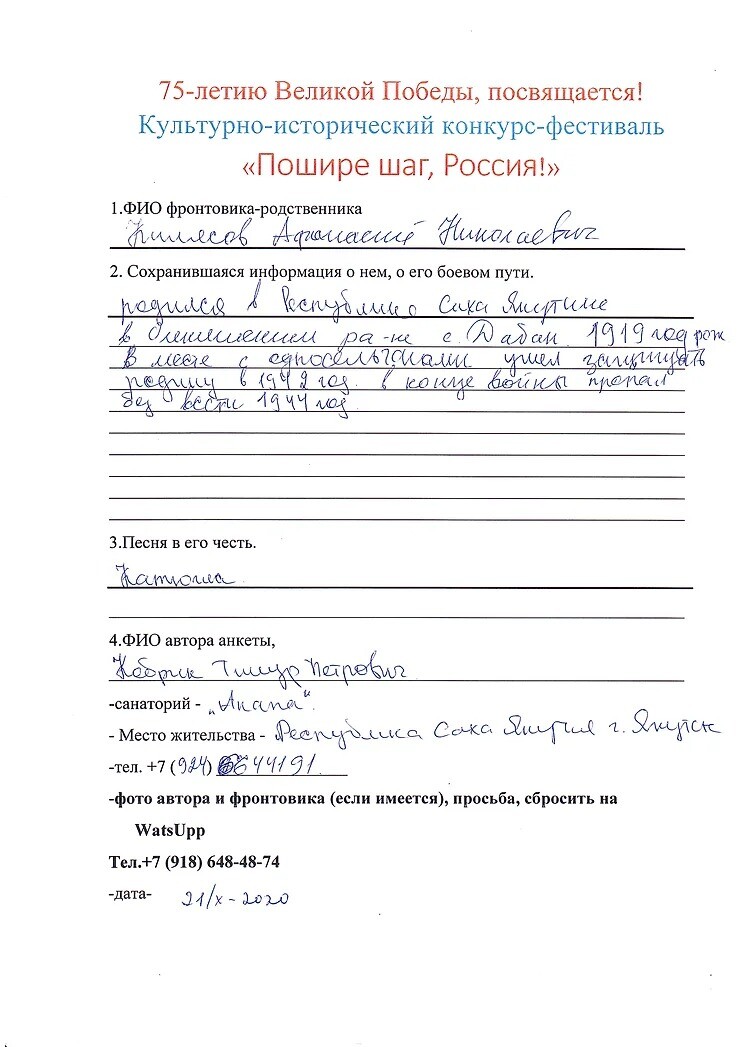 75-летию Великой Победы, посвящается!
Культурно-исторический конкурс-фестиваль
«Пошире шаг, Россия!»
1.ФИО фронтовика-родственника
Афанасий Николаевич
2. Сохранившаяся информация о нем, о его боевом пути.
родился в Саха
в с. Дабан 1919 год рож
В месте с односельчанами ушел защищать
родину в 1942 год. в конце войны пропал
без вести 1944 год
3.Песня в его честь.
Катюша
4.ФИО автора анкеты,
Тимур Петрович
-санаторий - „Анапа"
- Место жительства - Республика Саха г. Якутск
-тел. +7 (924)
-фото автора и фронтовика (если имеется), просьба, сбросить на
WatsUpp
Тел.+7 (918) 648-48-74
-дата- 21/х - 2020